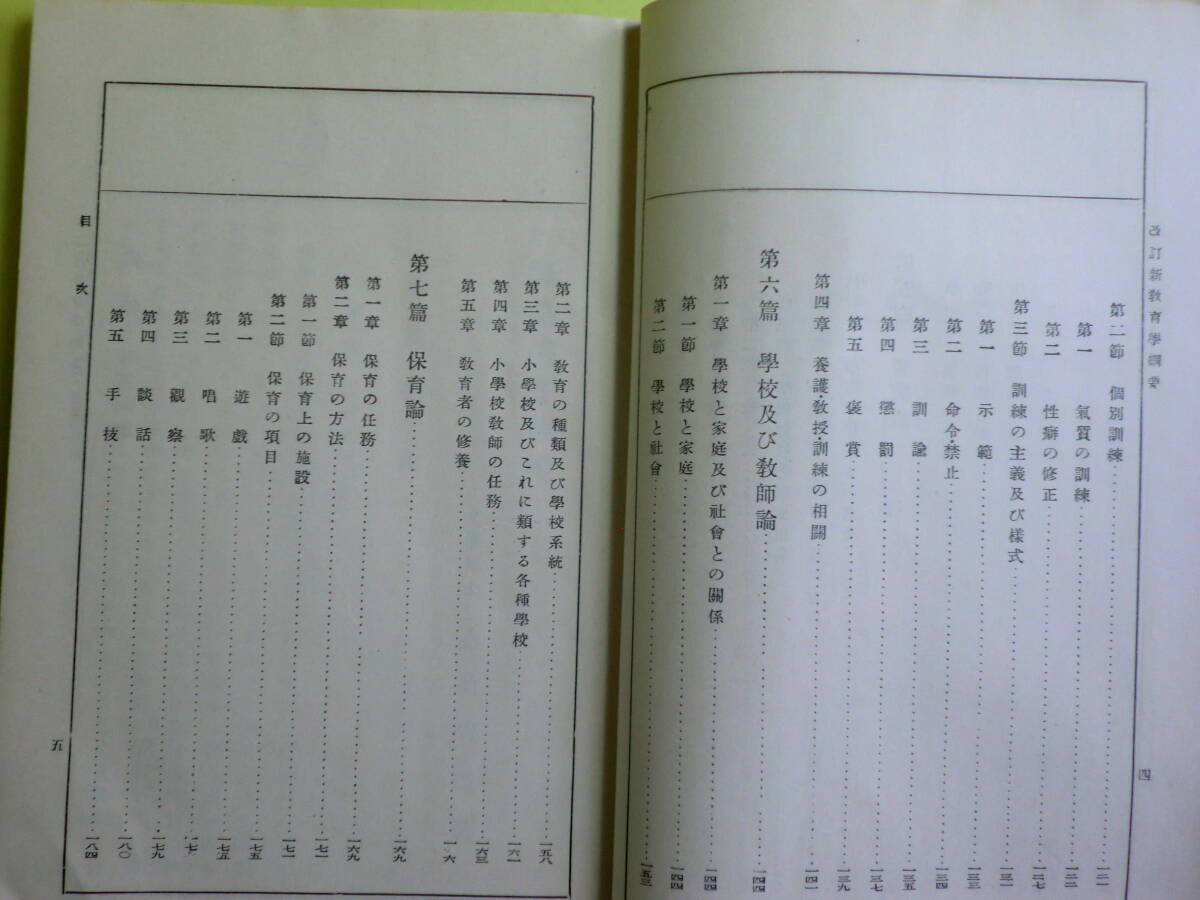 改訂新敎育學綱要
第二節 個別訓練……一二一
第一 氣質の訓練……一二二
第二 性癖の修正……一二七
第三節 訓練の主義及び樣式……一三一
第一 示範……一三三
第二 命令・禁止……一三四
第三 訓諭……一三五
第四 懲罰……一三七
第五 褒賞……一三九
第四章 養護・敎授・訓練の相關……一四一
第六篇 學校及び敎師論……一四四
第一章 學校と家庭及び社會との關係……一四四
第一節 學校と家庭……一四四
第二節 學校と社會……一五三
四
第二章 敎育の種類及び學校系統……一五八
第三章 小學校及びこれに類する各種學校……一六一
第四章 小學校敎師の任務……一六三
第五章 敎育者の修養……一六
第七篇 保育論……一六九
第一章 保育の任務……一六九
第二章 保育の方法……一七一
第一節 保育上の施設……一七一
第二節 保育の項目……一七五
第一 遊戲……一七五
第二 唱歌……一七
第三 觀察……一七九
第四 談話……一八〇
第五 手技……一八四
目次
五